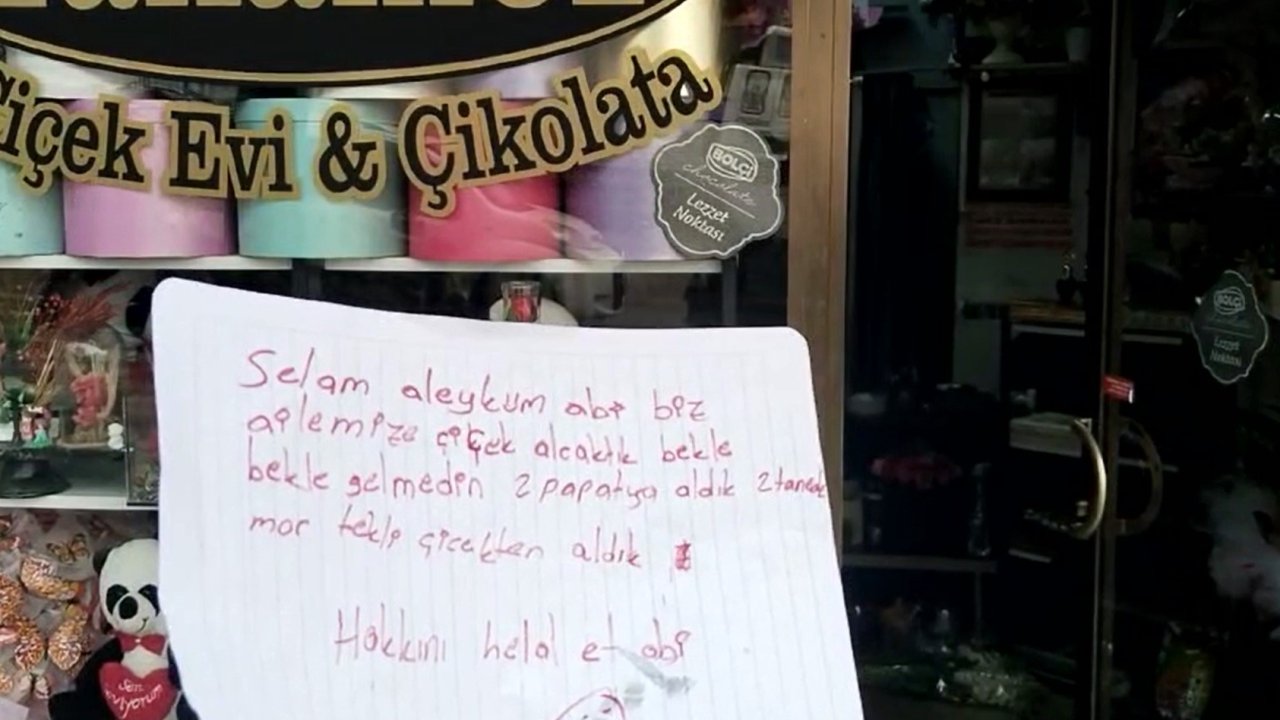 Çiçek Evi & Çikolata
BOLÇİ
chocolate
Lezzet
Noktası
BOLÇİ
Lezzet
Noktası
Selam aleykum abi biz
ailemize çiçek alcaktık bekle
bekle gelmeden 2 papatya aldık 2 tanede
mor tekli çicekten aldık
Hakkını helal et abi